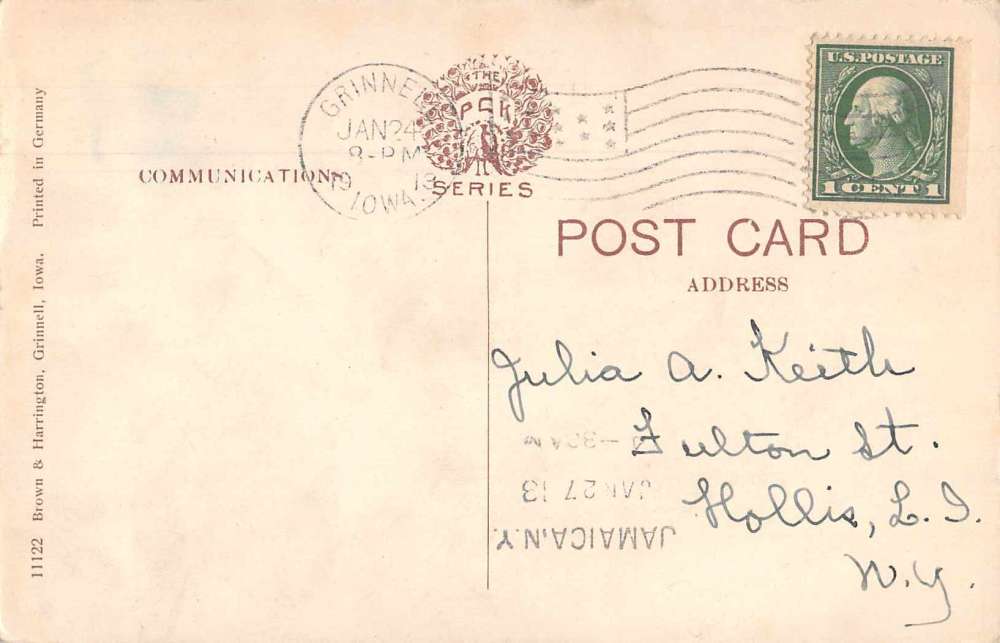 11122 Brown & Harrington, Grinnell, Iowa. Printed in Germany
COMMUNICATION
GRINNELL
JAN 24
8-PM
1913
IOWA.
THE
PCK
SERIES
U.S. POSTAGE
1 CENT 1
POST CARD
ADDRESS
Julia A. Keith
Fulton St.
Hollis, L. I.
N.Y.
JAMAICA, N.Y.
JAN 27 13
-30AM